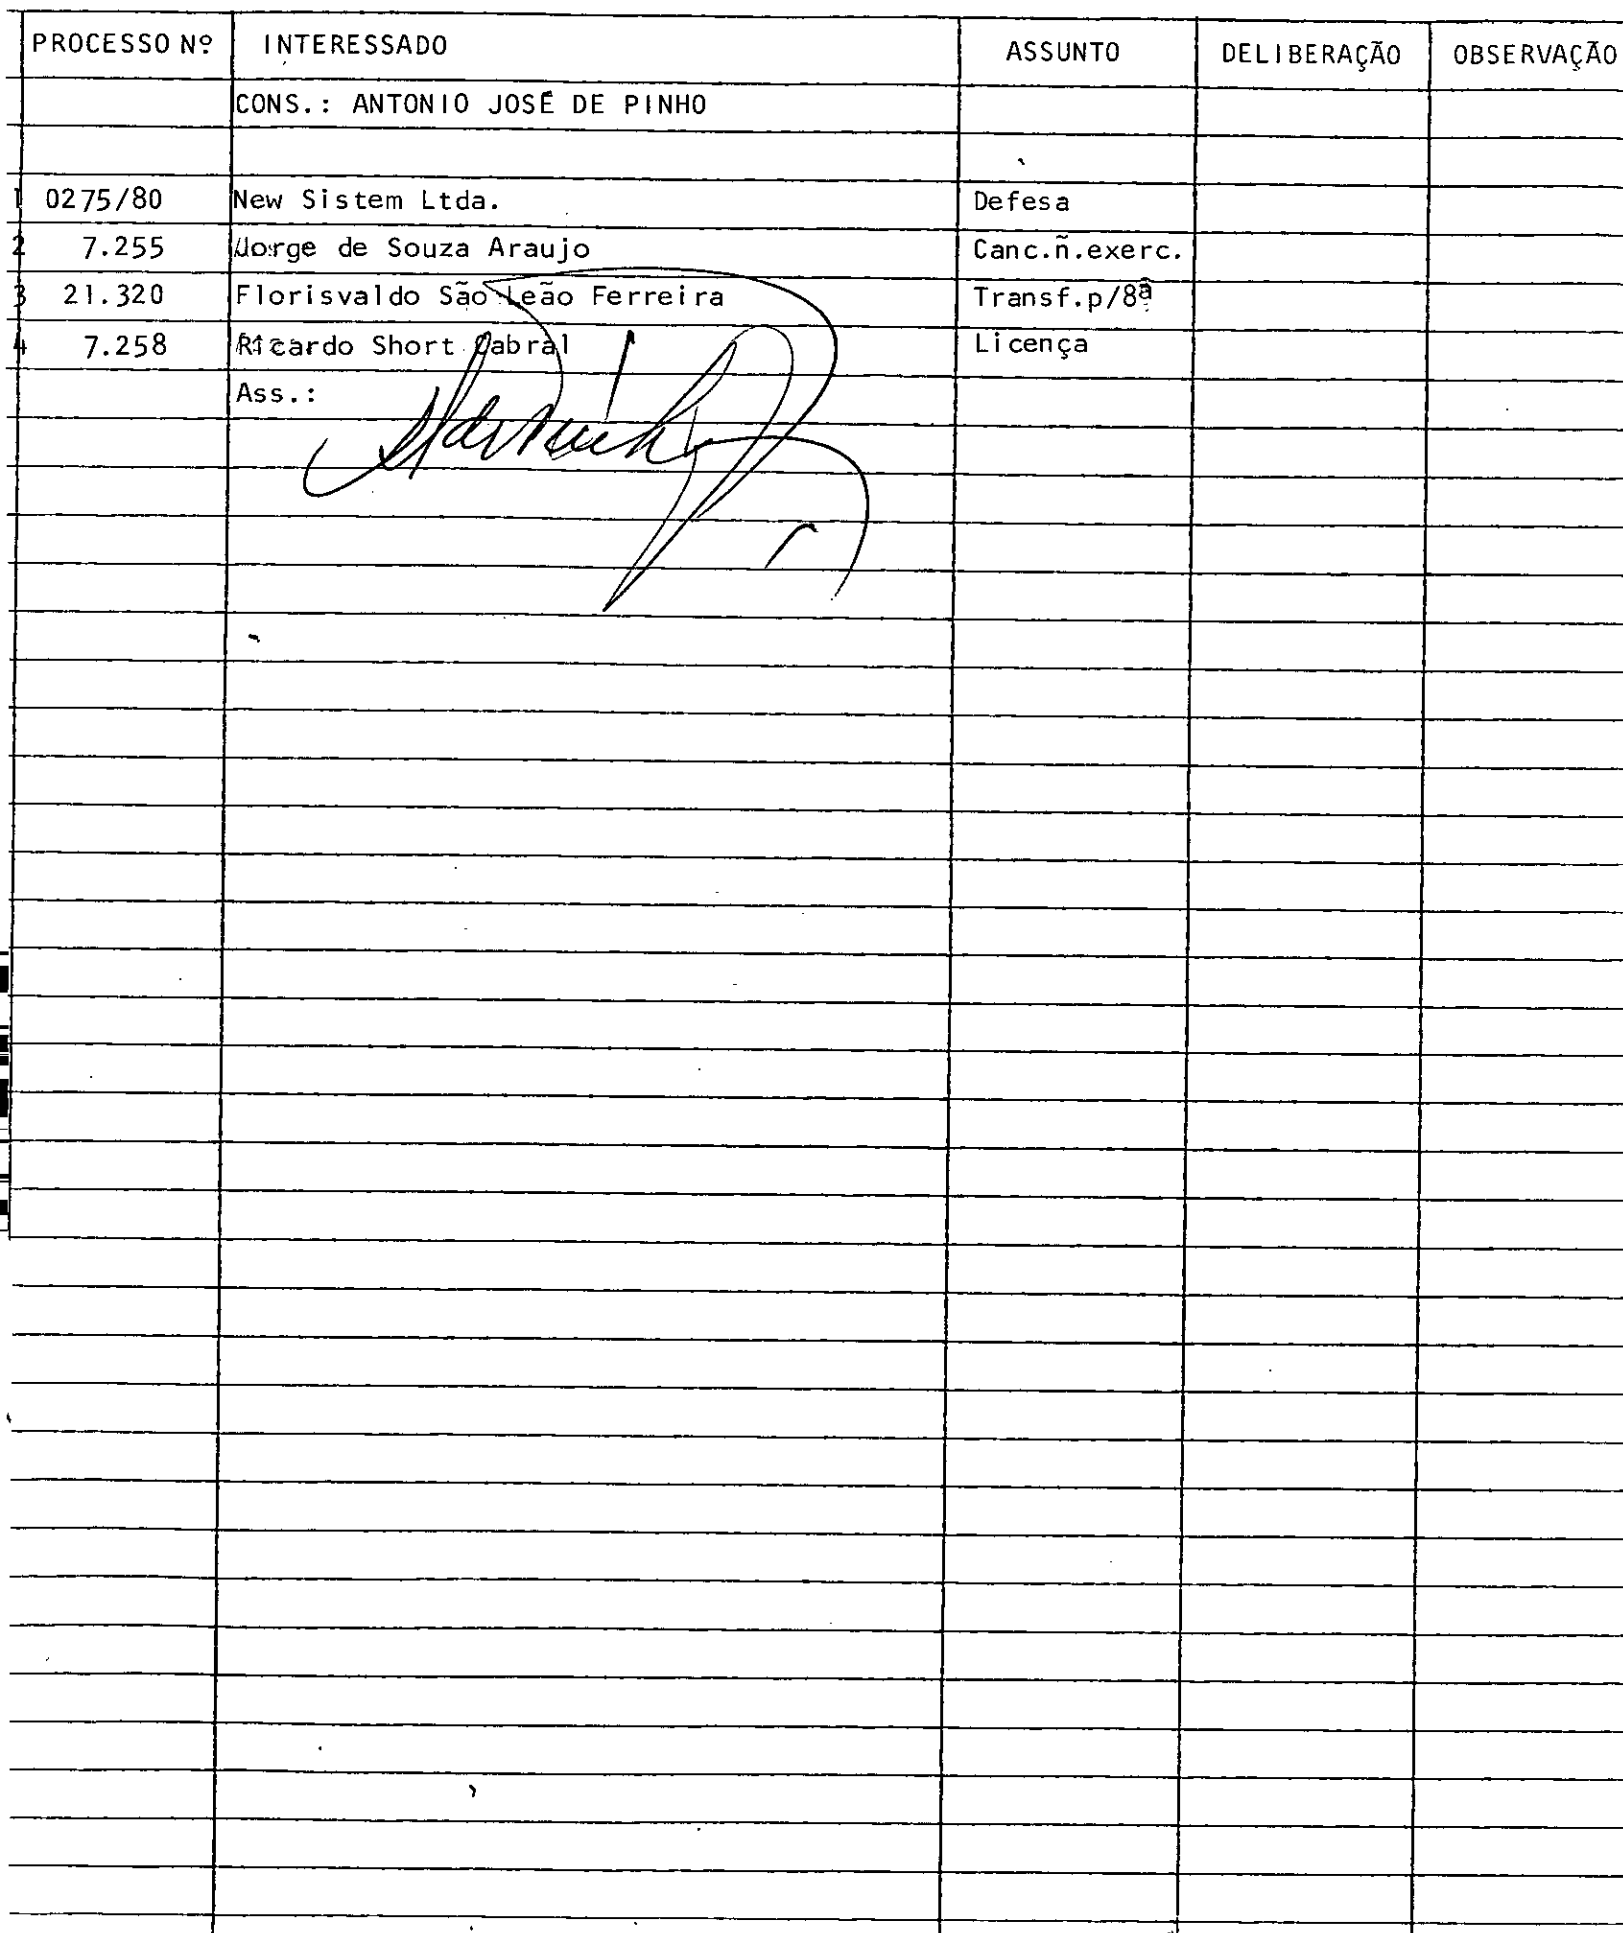 PROCESSO Nº INTERESSADO ASSUNTO DELIBERAÇÃO OBSERVAÇÃO
CONS.: ANTONIO JOSÉ DE PINHO
1 0275/80 New Sistem Ltda. Defesa
2 7.255 Jorge de Souza Araujo Canc.ñ.exerc.
3 21.320 Florisvaldo São Leão Ferreira Transf.p/8ª
4 7.258 Ricardo Short Cabral Licença
Ass.: